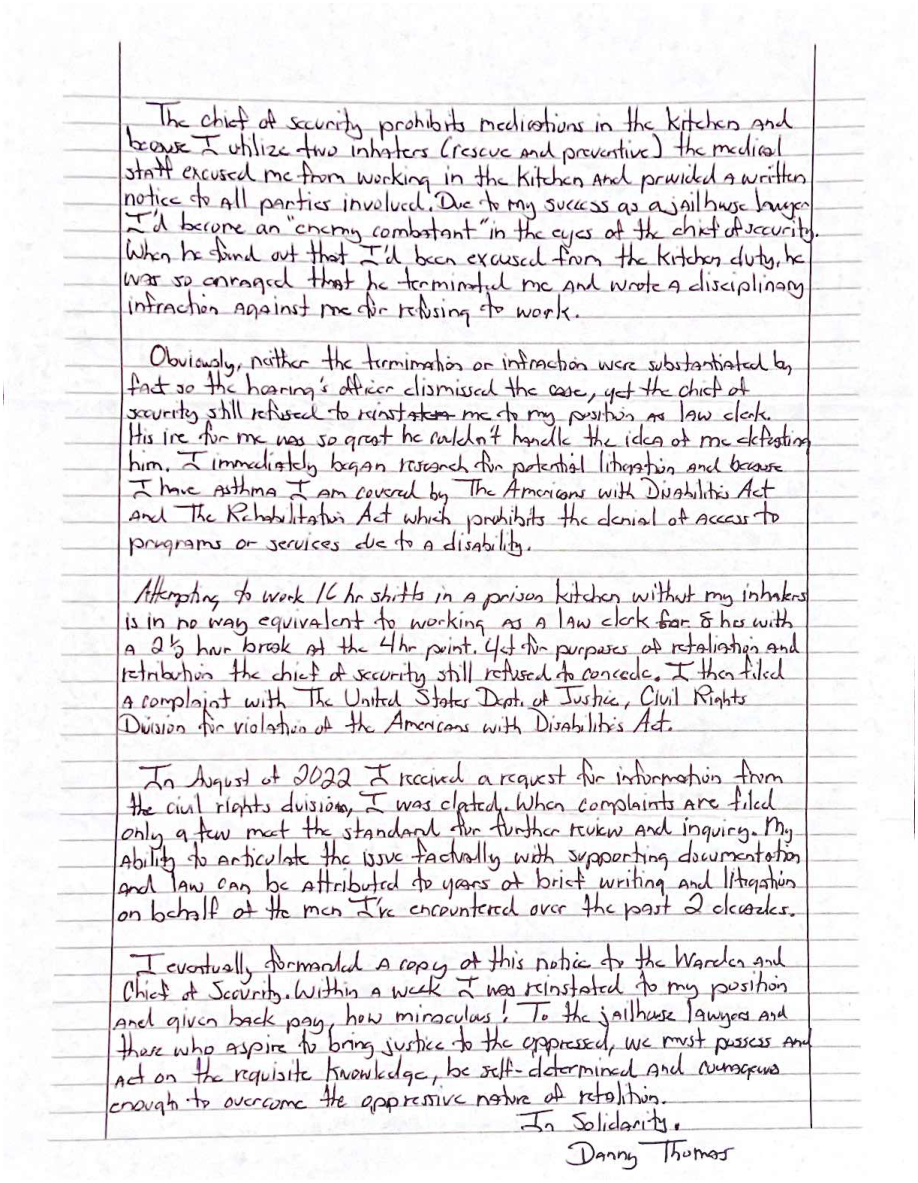 The chief of security prohibits medications in the kitchen and
because I utilize two inhalers (rescue and preventive) the medical
staff excused me from working in the kitchen and provided a written
notice to all parties involved. Due to my success as a jailhouse lawyer
I'd become an "enemy combatant" in the eyes of the chief of security.
When he found out that I'd been excused from the kitchen duty, he
was so enraged that he terminated me and wrote a disciplinary
infraction against me for refusing to work.
Obviously, neither the termination or infraction were substantiated by
fact so the hearing's officer dismissed the case, yet the chief of
security still refused to reinstate me to my position as law clerk.
His ire for me was so great he couldn't handle the idea of me defeating
him. I immediately began research for potential litigation and because
I have asthma I am covered by The Americans with Disabilities Act
and The Rehabilitation Act which prohibits the denial of access to
programs or services due to a disability.
Attempting to work 16 hr shifts in a prison kitchen without my inhalers
is in no way equivalent to working as a law clerk for 8 hrs with
a 2½ hour break at the 4hr point. Yet for purposes of retaliation and
retribution the chief of security still refused to concede. I then filed
a complaint with The United States Dept. of Justice, Civil Rights
Division for violation of the Americans with Disabilities Act.
In August of 2022 I received a request for information from
the civil rights division, I was elated. When complaints are filed
only a few meet the standard for further review and inquiry. My
ability to articulate the issue factually with supporting documentation
and law can be attributed to years of brief writing and litigation
on behalf of the men I've encountered over the past 2 decades.
I eventually forwarded a copy of this notice to the Warden and
Chief of Security. Within a week I was reinstated to my position
and given back pay, how miraculous! To the jailhouse lawyers and
those who aspire to bring justice to the oppressed, we must possess and
act on the requisite knowledge, be self-determined and courageous
enough to overcome the oppressive nature of retalition.
In Solidarity.
Danny Thomas